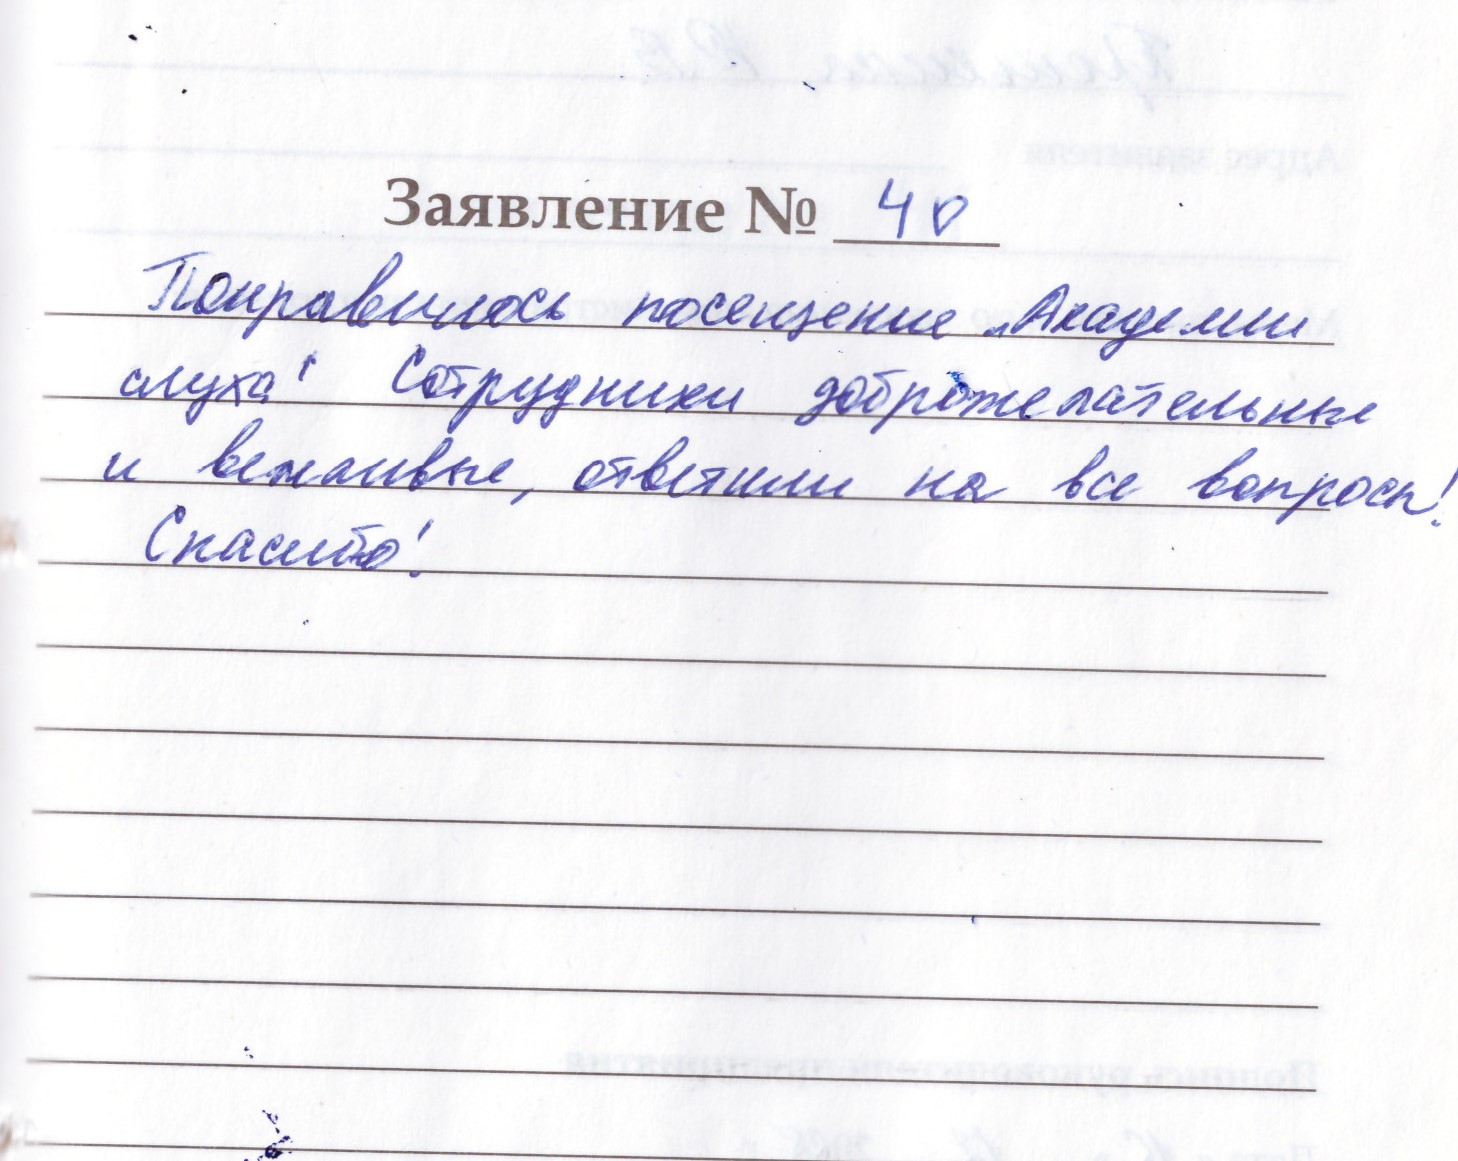 Заявление № 40
Понравилось посещение „Академии
слуха" Сотрудники доброжелательные
и вежливые, ответили на все вопросы!
Спасибо!